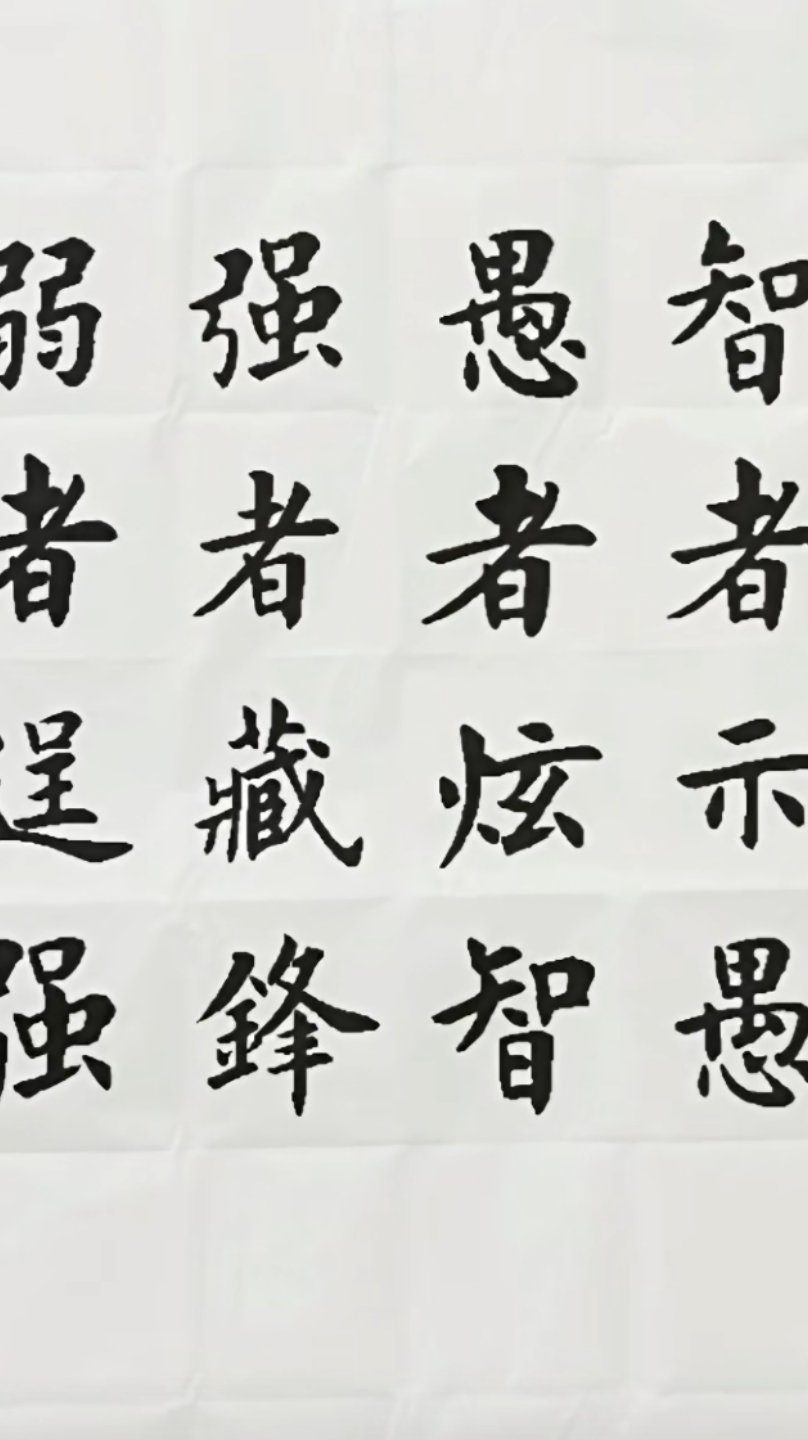 智者示愚
愚者炫智
强者藏鋒
弱者逞强